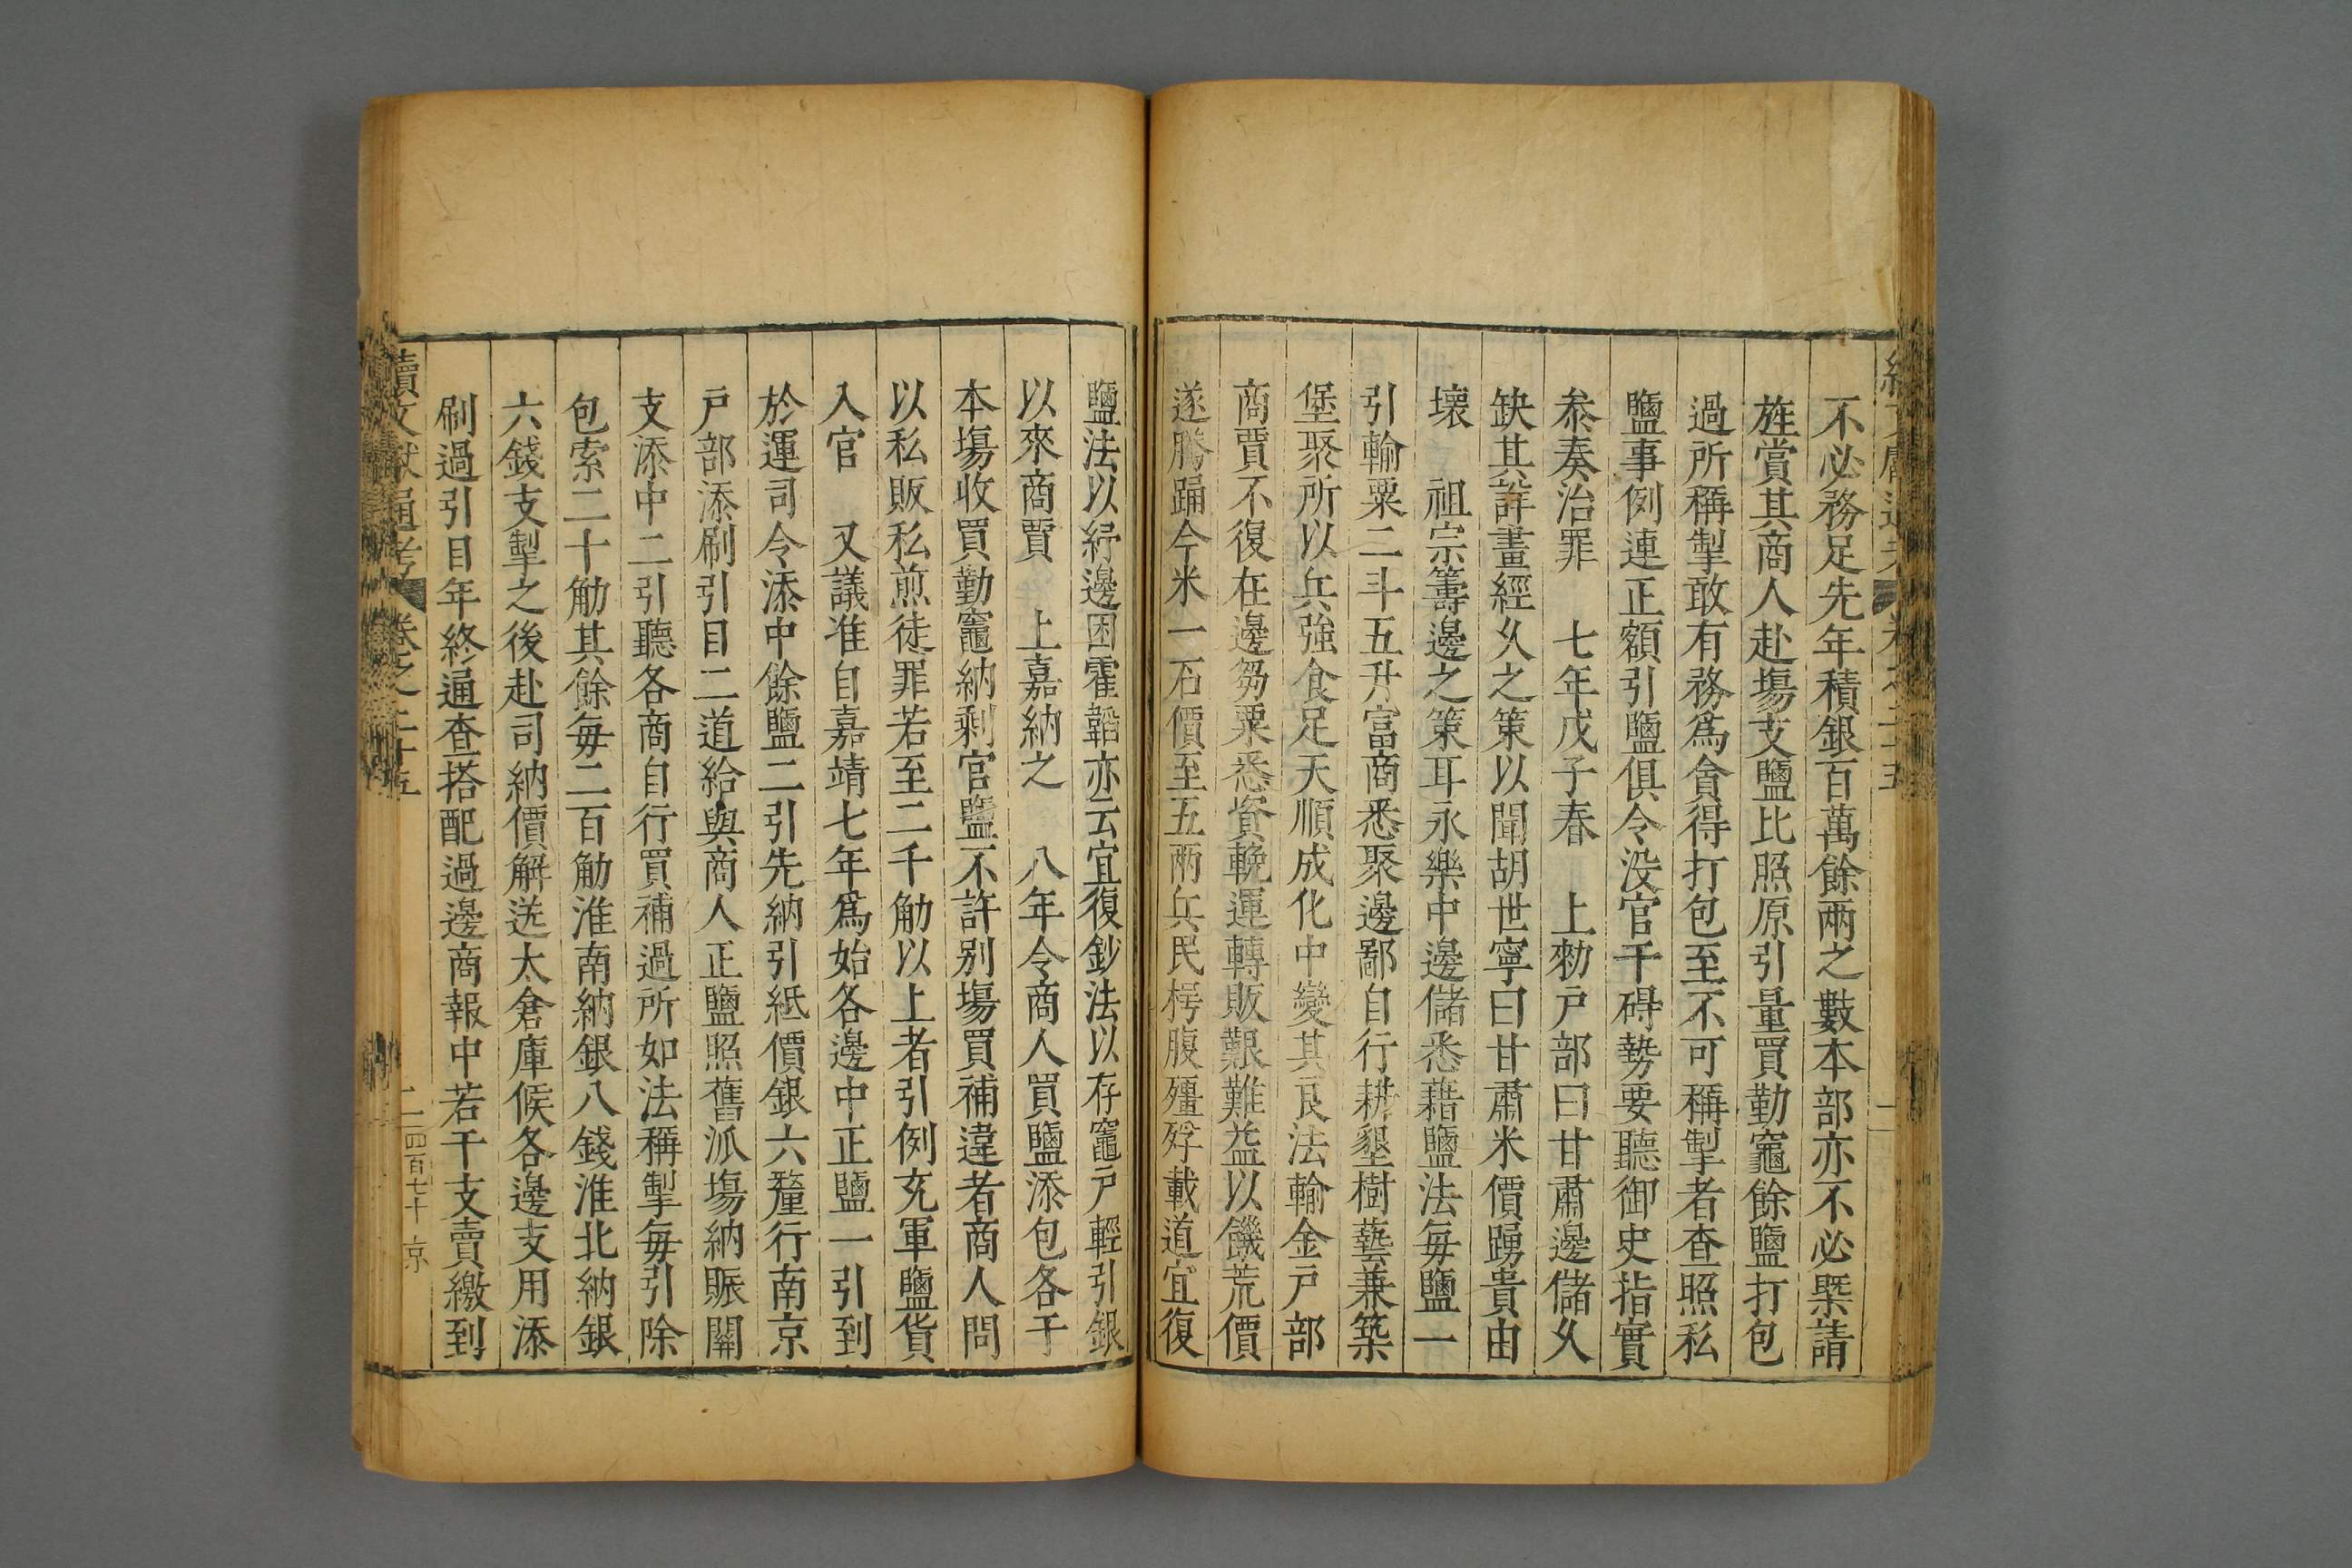 不必務足先年積銀百萬餘兩之數本部亦不必槩請
旌賞其商人赴塲支鹽比照原引量買勤竈餘鹽打包
過所稱掣敢有務爲貪得打包至不可稱掣者查照私
鹽事例連正額引鹽俱令没官干碍勢要聽御史指實
叅奏治罪 七年戊子春 上勑戸部曰甘肅邊儲久
缺其詳畫經久之策以聞胡世寧曰甘肅米價踴貴由
壞 祖宗籌邊之策耳永樂中邊儲悉藉鹽法每鹽一
引輸粟二斗五升富商悉聚邊鄙自行耕墾樹藝兼築
堡聚所以兵強食足天順成化中變其良法輸金戸部
商賈不復在邊芻粟悉資輓運轉販艱難益以饑荒價
遂騰踊今米一石價至五兩兵民枵腹殭殍載道宜復
鹽法以紓邊困霍韜亦云宜復鈔法以存竈戸輕引銀
以來商賈 上嘉納之 八年令商人買鹽添包各于
本塲收買勤竈納剩官鹽不許别塲買補違者商人問
以私販私煎徒罪若至二千觔以上者引例充軍鹽貨
入官 又議准自嘉靖七年爲始各邊中正鹽一引到
於運司令添中餘鹽二引先納引紙價銀六釐行南京
戸部添刷引目二道給與商人正鹽照舊派塲納賑關
支添中二引聽各商自行買補過所如法稱掣每引除
包索二十觔其餘每二百觔淮南納銀八錢淮北納銀
六錢支掣之後赴司納價解送太倉庫候各邊支用添
刷過引目年終通查搭配過邊商報中若干支賣繳到
續文獻通考 卷之二十五 二 四百七十 京